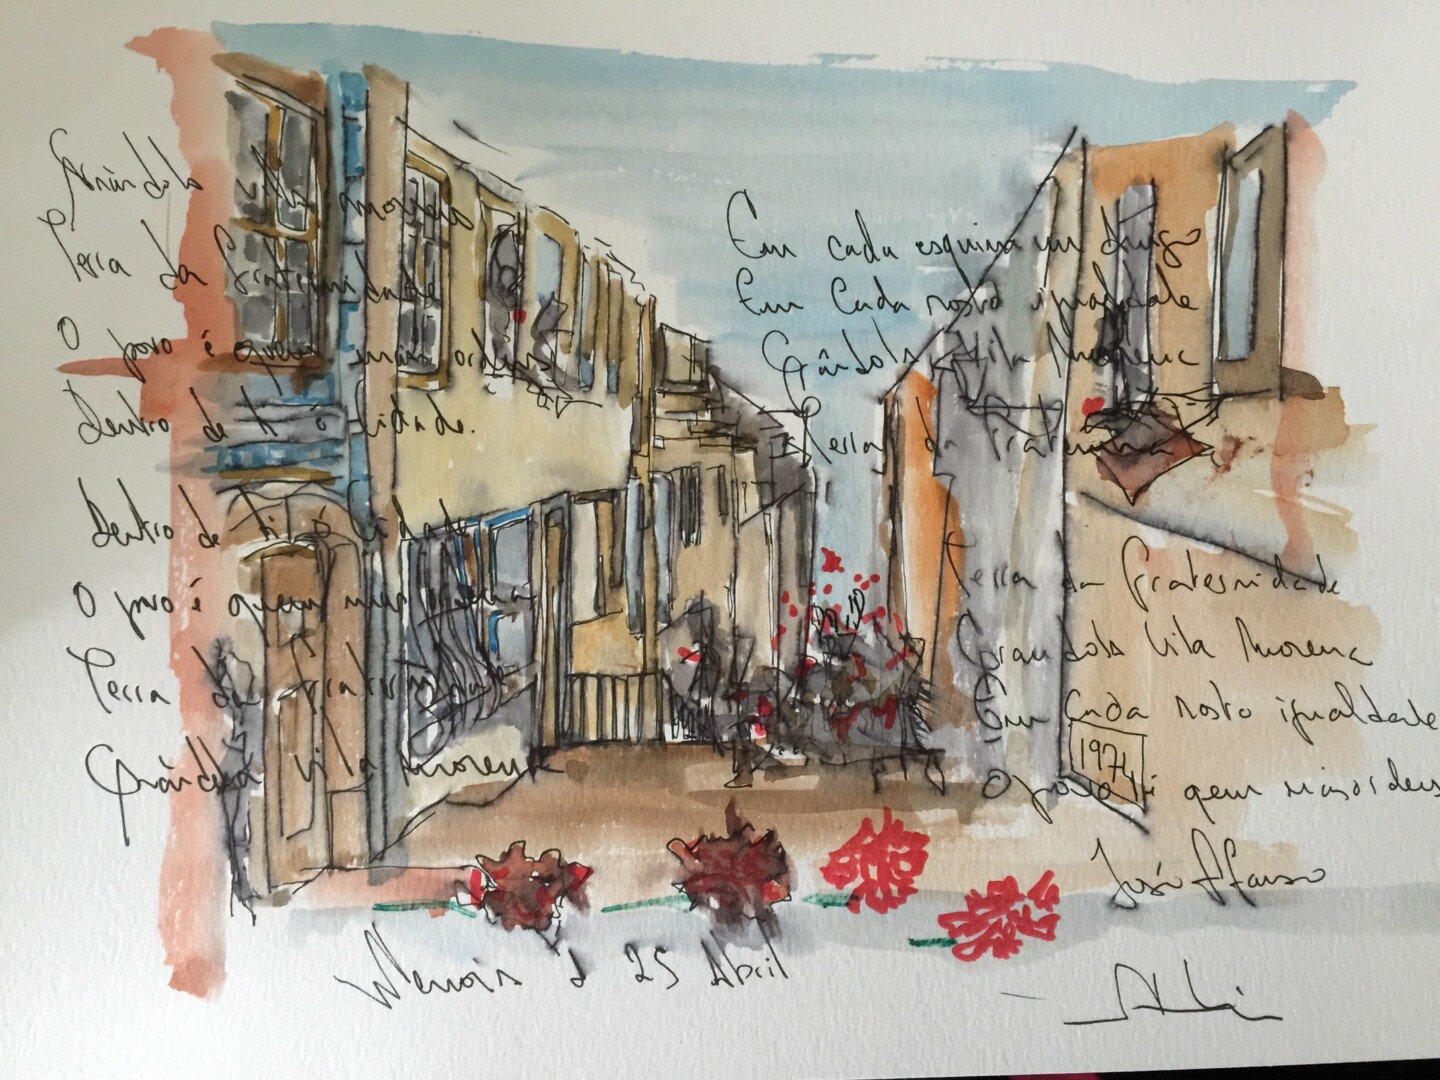 Grândola vila morena
Terra da fraternidade
O povo é quem mais ordena
Dentro de ti ó cidade.
Dentro de ti ó cidade
O povo é quem mais ordena
Terra da fraternidade
Grândola vila morena
Em cada esquina um amigo
Em cada rosto igualdade
Grândola Vila Morena
Terra da fraternidade
Terra da fraternidade
Grandola Vila Morena
Em cada rosto igualdade
O povo é quem mais ordena
José Afonso
1974
25 Abril